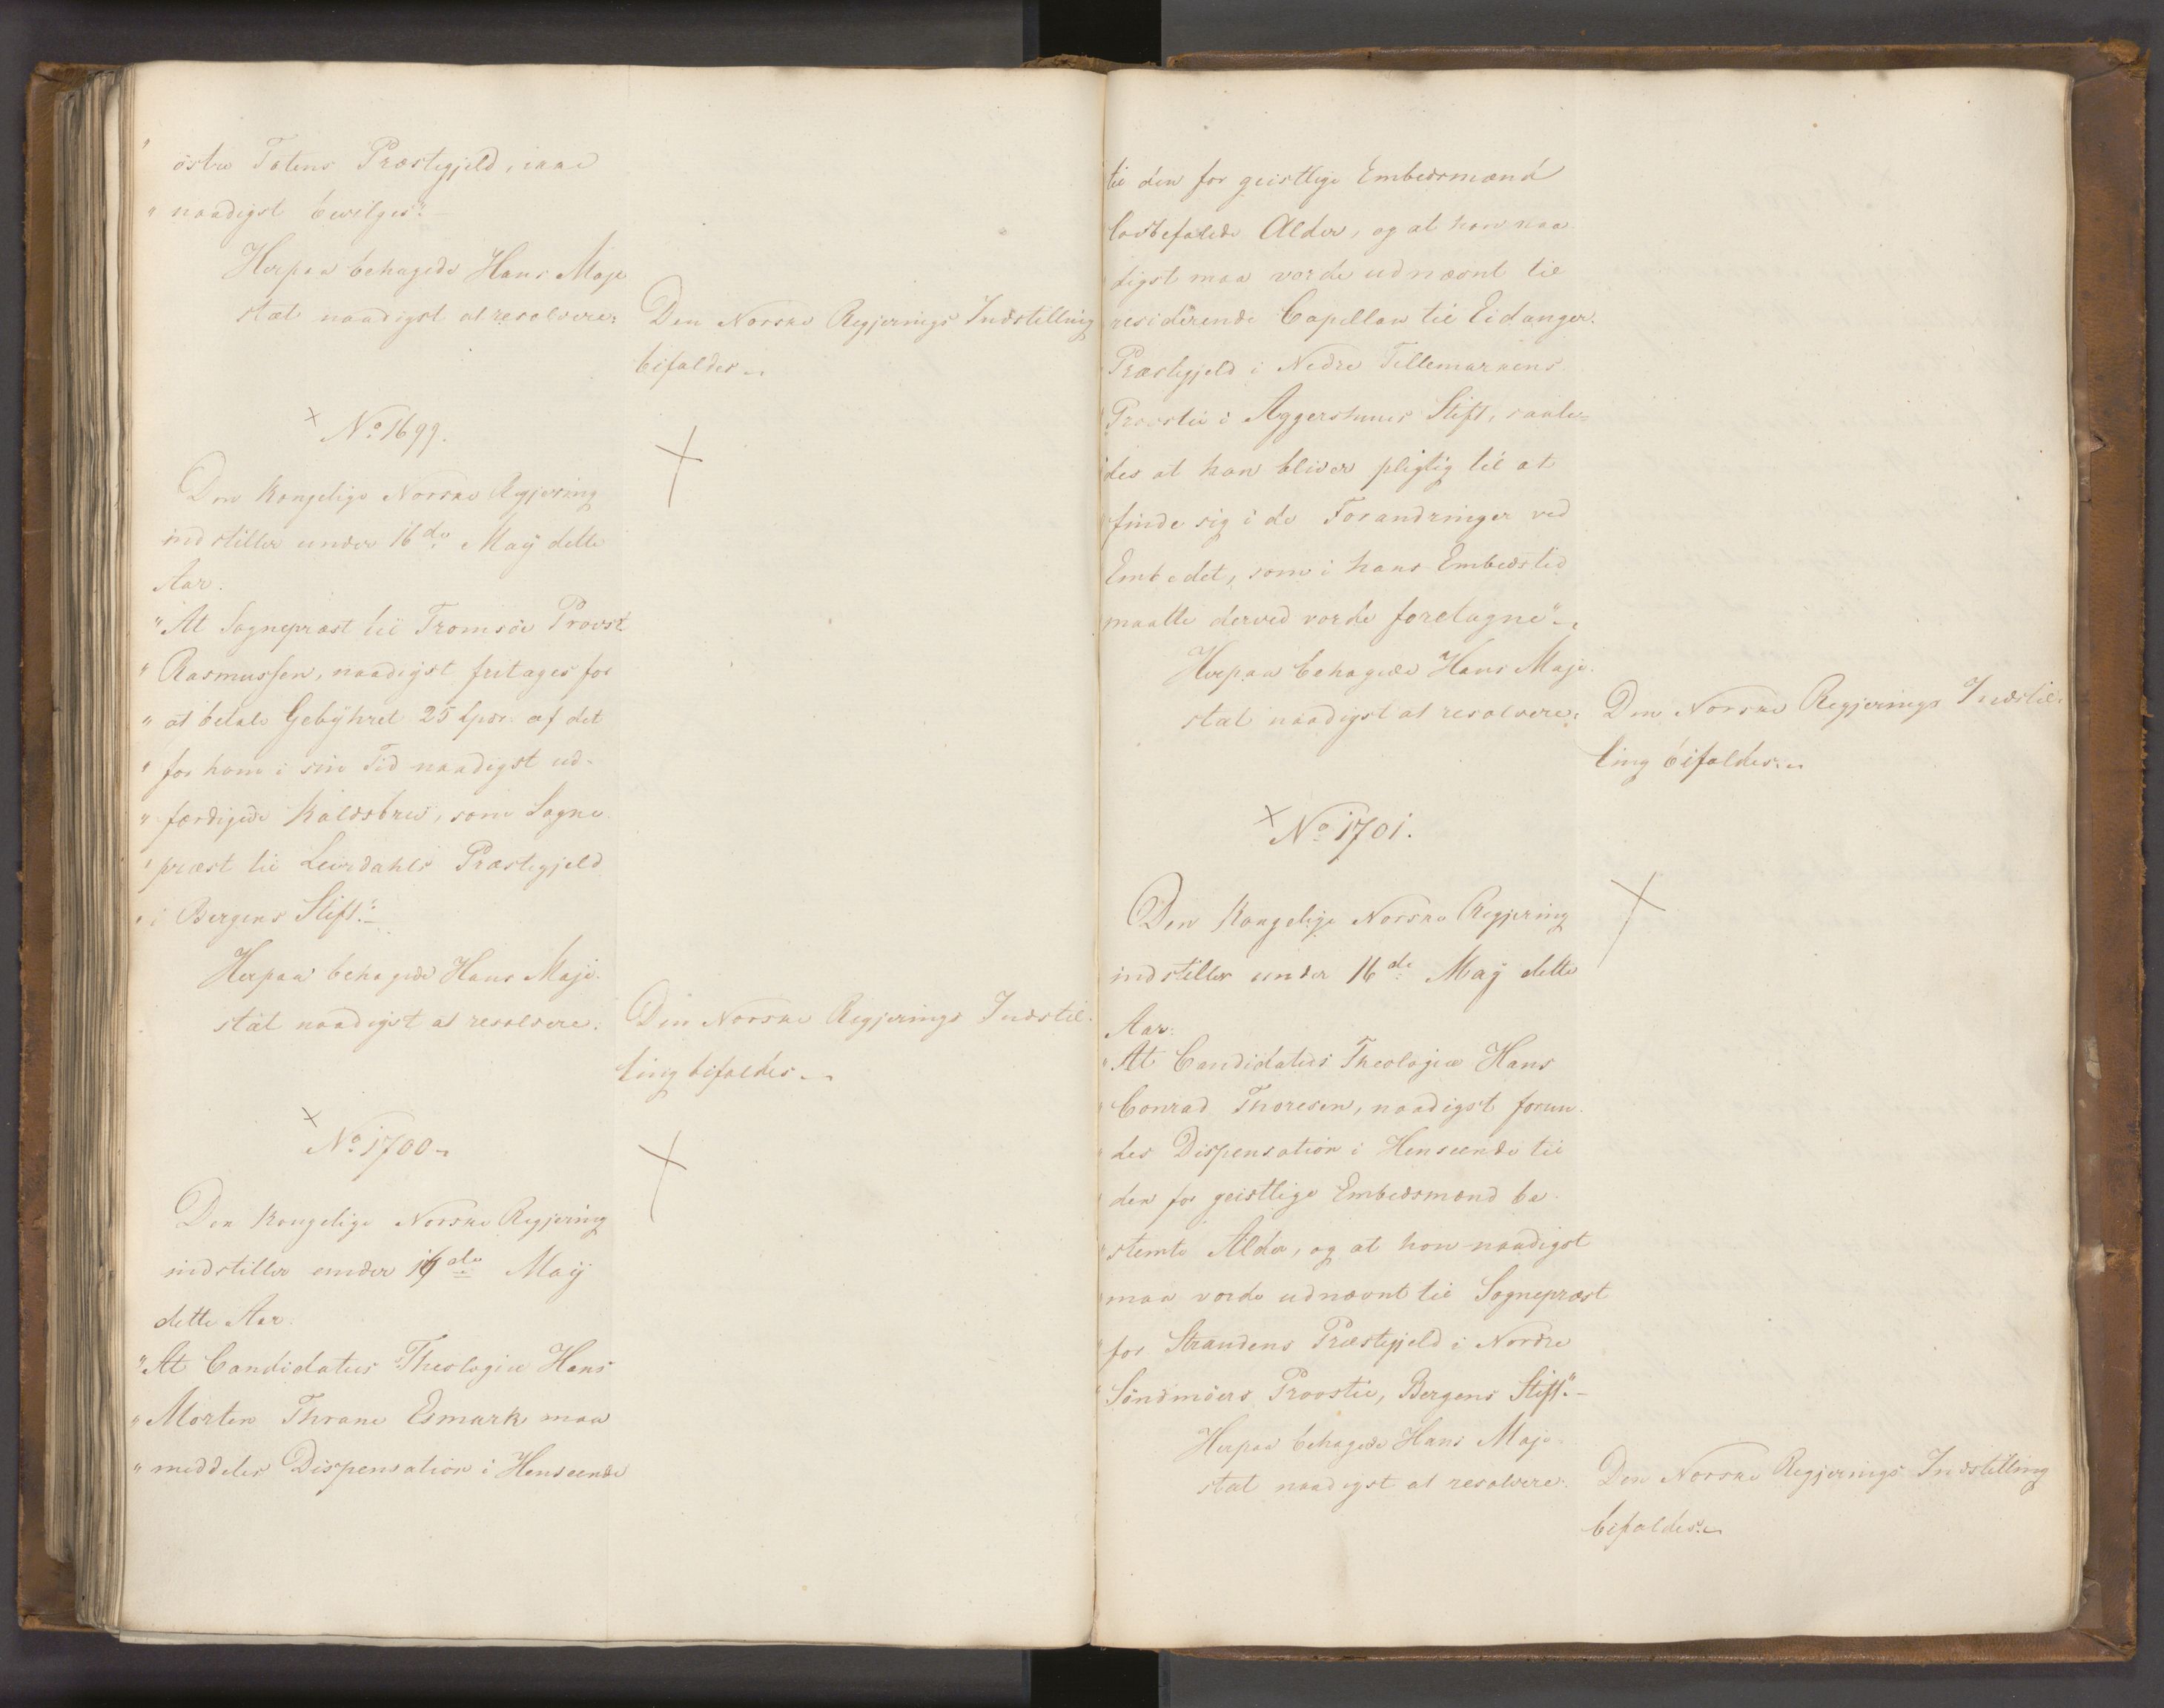 östre Totens Præstegjeld, maae
" naadigst bevilges".
Herpaa behagede Hans Maje
stæt naadigst at resolvere: Den Norske Regjerings Indstilling
bifaldes.
No 1699.
Den Kongelige Norske Regjering
indstiller under 16de Maÿ dette
Aar:
"At Sognepræst til Tromsöe Provst
" Rasmussen, naadigst fritages for
" at betale Gebÿhret 25 Spdr. af det
" for ham i sin Tid naadigst ud-
" færdigede Kaldsbrev, som Sogne
" præst til Leirdahls Præstegjeld
" i Bergens Stift".
Herpaa behagede Hans Maje-
stæt naadigst at resolvere: Den Norske Regjerings Indstil-
ling bifaldes.
No 1700.
Den Kongelige Norske Regjering
indstiller under 16de Maÿ
dette Aar.
"At Candidatus Theologiæ Hans
" Morten Thrane Esmark maa
" meddeles Dispensation i Henseende
til den for geistlige Embedsmænd
lovbefalede Alder, og at han naa
digst maa vorde udnævnt til
residerende Capellan til Eidanger
Præstegjeld i Nedre Tellemarkens
Provstie i Aggershuus Stift, saale-
des at han bliver pligtig til at
finde sig i de Forandringer ved
Embedet, som i hans Embedstid
maatte derved vorde foretagne".
Herpaa behagede Hans Maje-
stæt naadigst at resolvere: Den Norske Regjerings Indstil-
ling bifaldes.
No 1701.
Den Kongelige Norske Regjering
indstiller under 16de Maÿ dette
Aar:
"At Candidatus Theologiæ Hans
" Conrad Thoresen, naadigst forun-
" des Dispensation i Henseende til
" den for geistlige Embedsmænd be-
" stemte Alder, og at han naadigst
" maa vorde udnævnt til Sognepræst
" for Strandens Præstegjeld i Nordre
" Söndmöers Provstie, Bergens Stift".
Herpaa behagede Hans Maje-
stæt naadigst at resolvere: Den Norske Regjerings Indstilling
bifaldes.